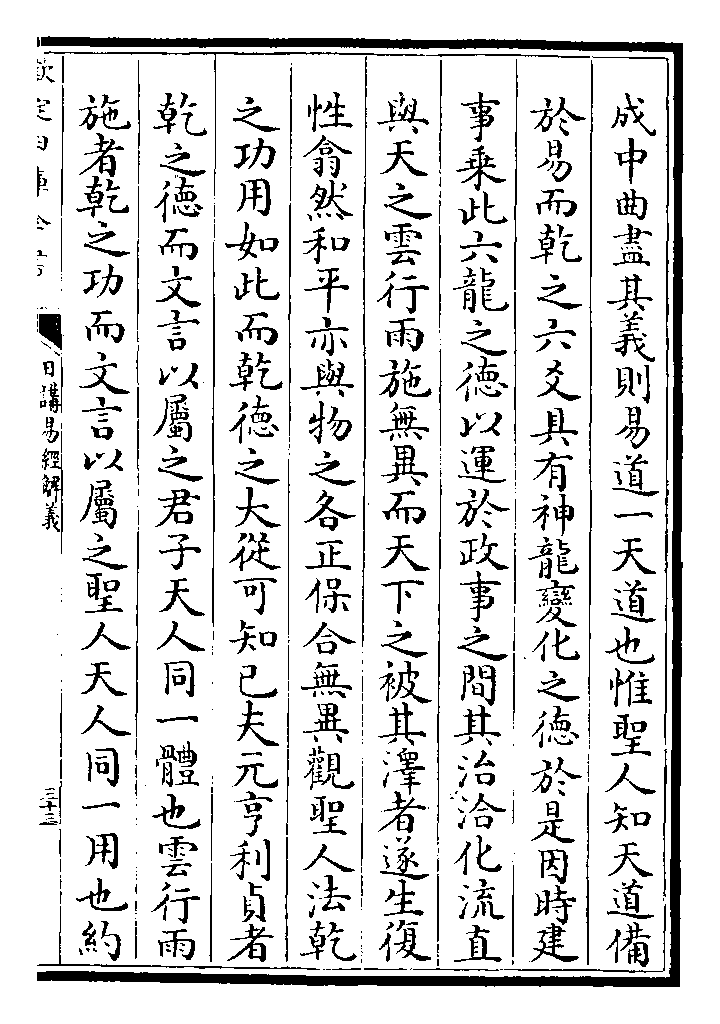 成中曲盡其義則易道一天道也惟聖人知天道備
於易而乾之六爻具有神龍變化之德於是因時建
事乗此六龍之德以運於政事之間其治洽化流直
與天之雲行雨施無異而天下之被其澤者遂生復
性翕然和平亦與物之各正保合無異觀聖人法乾
之功用如此而乾德之大從可知已夫元亨利貞者
乾之德而文言以屬之君子天人同一體也雲行雨
施者乾之功而文言以屬之聖人天人同一用也約
欽定四庫全書
日講易經解義
三十三